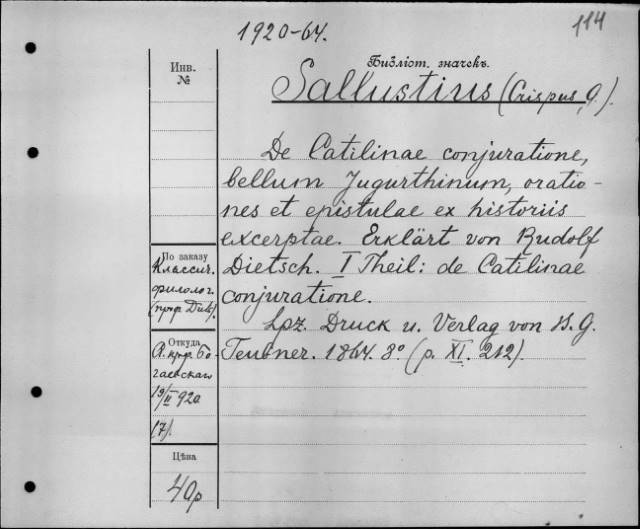 1920-64.
114
Инв.
№
Библіот. значекъ.
Sallustius (Crispus, G.).
De Catilinae conjuratione,
bellum Jugurthinum, oratio-
nes et epistulae ex historiis
excerptae. Erklärt von Rudolf
Dietsch. I Theil: de Catilinae
conjuratione.
Lpz. Druck u. Verlag von B. G.
Teubner. 1864. 8° (p. XI. 212).
По заказу
Классич.
филолог.
(проф.
Откуда
19/II 920
(7).
Цѣна
40р